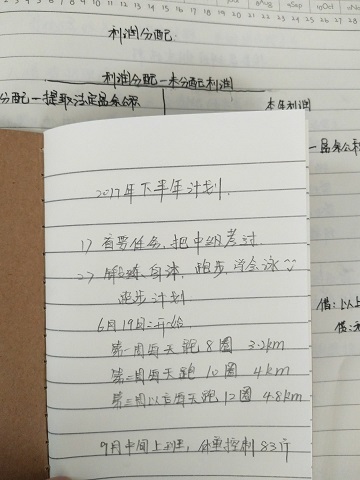 利润分配
利润分配—未分配利润
分配—提取法定盈余公积
本年利润
—盈余公积
2017年下半年计划.
1) 首要任务, 把中级考过.
2) 锻炼身体, 跑步, 学会泳
跑步计划
6月19日开始
第一周每天跑 8圈 3.2km
第二周每天跑 10圈 4km
第三周以后每天跑 12圈 4.8km
9月中间上班, 体重控制 83斤
借: 以上
借: